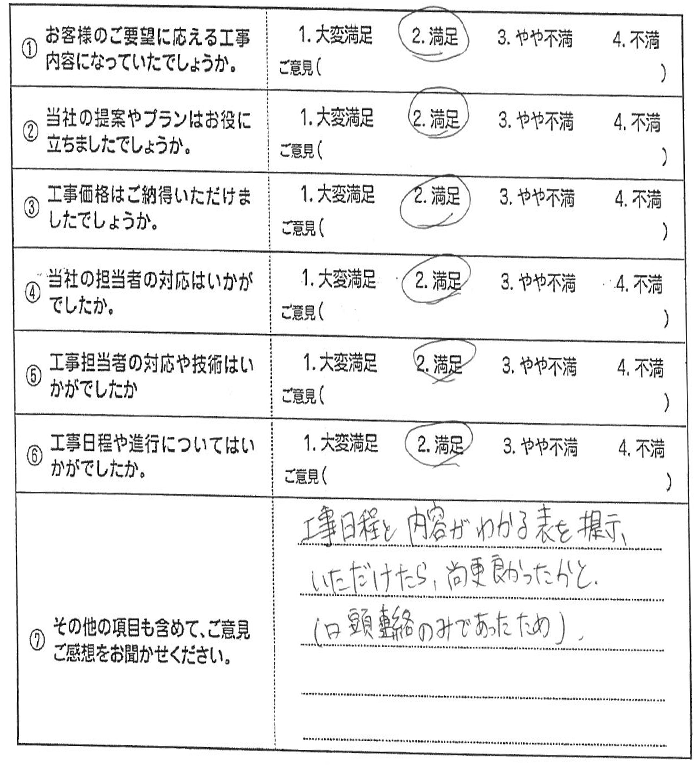 ① お客様のご要望に応える工事
内容になっていたでしょうか。
1. 大変満足 2. 満足 3. やや不満 4. 不満
ご意見( )
② 当社の提案やプランはお役に
立ちましたでしょうか。
1. 大変満足 2. 満足 3. やや不満 4. 不満
ご意見( )
③ 工事価格はご納得いただけま
したでしょうか。
1. 大変満足 2. 満足 3. やや不満 4. 不満
ご意見( )
④ 当社の担当者の対応はいかが
でしたか。
1. 大変満足 2. 満足 3. やや不満 4. 不満
ご意見( )
⑤ 工事担当者の対応や技術はい
かがでしたか
1. 大変満足 2. 満足 3. やや不満 4. 不満
ご意見( )
⑥ 工事日程や進行についてはい
かがでしたか。
1. 大変満足 2. 満足 3. やや不満 4. 不満
ご意見( )
⑦ その他の項目も含めて、ご意見
ご感想をお聞かせください。
工事日程と内容がわかる表を提示、
いただけたら、尚更良かったかと.
(口頭連絡のみであったため).